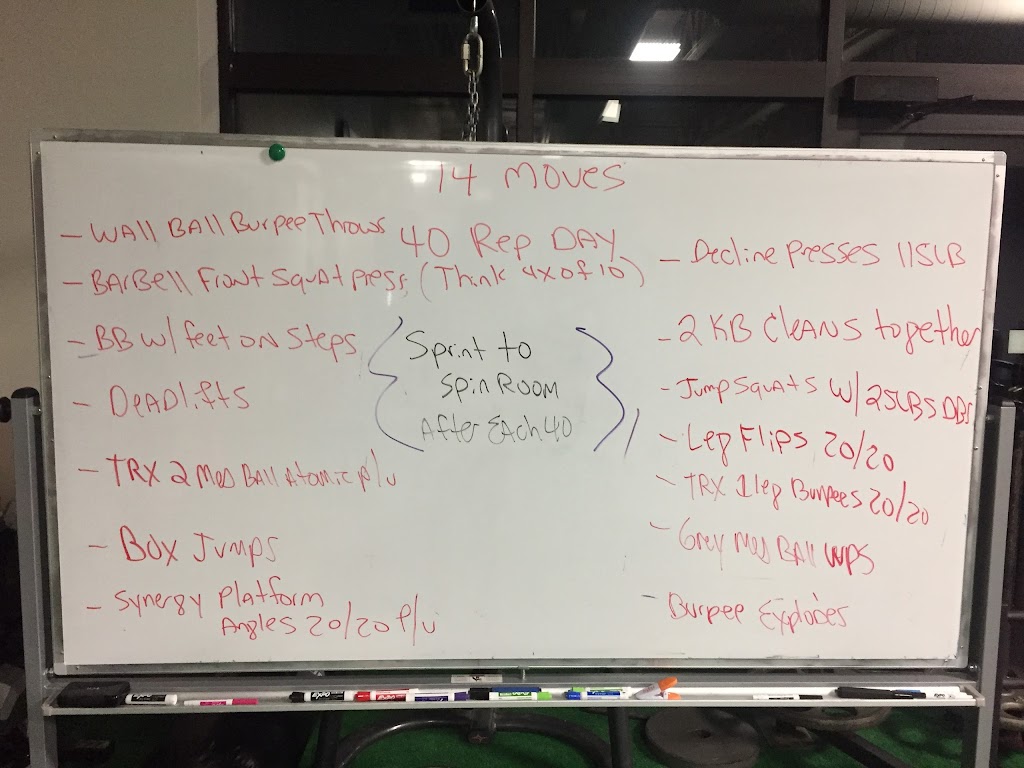 14 MOVES
40 Rep DAY
(Think 4x of 10)
- WAll BAll Burpee Throws
- BArBell Front Squat press
- BB w/ feet ON Steps
- DeADlifts
- TRX 2 Med BAll Atomic p/u
- BOX Jumps
- Synergy Platform
Angles 20/20 p/u
Sprint to
Spin ROOM
After EAch 40
- Decline Presses 115LB
- 2 KB CleANS together
- Jump Squats W/ 25LBS DBS
- Leg Flips 20/20
- TRX 1 leg Burpees 20/20
- Grey Med BAll
- Burpee Explodes
EXPO